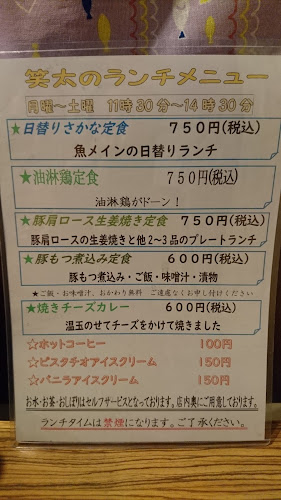 笑太のランチメニュー
月曜～土曜 11時30分～14時30分
★日替りさかな定食 750円(税込)
魚メインの日替りランチ
★油淋鶏定食 750円(税込)
油淋鶏がドーン！
★豚肩ロース生姜焼き定食 750円(税込)
豚肩ロースの生姜焼きと他2～3品のプレートランチ
★豚もつ煮込み定食 600円(税込)
豚もつ煮込み・ご飯・味噌汁・漬物
★ご飯・お味噌汁、おかわり無料 ご遠慮なくお申し付けください
★焼きチーズカレー 600円(税込)
温玉のせてチーズをかけて焼きました
☆ホットコーヒー 100円
☆ピスタチオアイスクリーム 150円
☆バニラアイスクリーム 150円
お水・お茶・おしぼりはセルフサービスとなっております。店内奥にご用意しております。
ランチタイムは禁煙になります。ご了承ください。